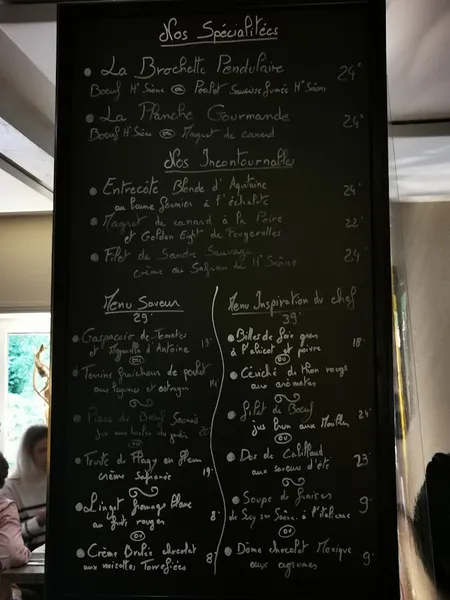 Nos Spécialitées
La Brochette Pendulaire 24€
Boeuf Hte Saône ou Poulet Saucisse fumée Hte Saône
La Planche Gourmande 24€
Boeuf Hte Saône ou Magret de canard
Nos Incontournables
Entrecôte Blonde d'Aquitaine 24€
au beurre fermier à l'échalote
Magret de canard à la Poire 22€
et Golden Eight de Fougerolles
Filet de Sandre Sauvage 24€
crème au Safran de Hte Saône
Menu Saveur
29€
Gaspaccio de Tomates
et Mozzarella d'Antoine
ou
Terrine fraicheur de poulet
aux légumes et estragon
Pièce de Boeuf
ou
Truite de Plagey en fleur 19€
crème safranée
Lingot fromage blanc
au fruits rouges 8€
ou
Crème Brulée chocolat 8€
aux noisettes Torrefiées
Menu Inspiration du chef
39€
Billes de foie gras 18€
à l'abricot et poivre
ou
Céviché de thon rouge
aux aromates
Filet de Boeuf 24€
jus brun aux Morilles
ou
Dos de Cabillaud 23€
aux saveurs d'été
Soupe de fraises 9€
de Scey sur Saône à l'italienne
ou
Dôme chocolat Mexique 9€
aux agrumes